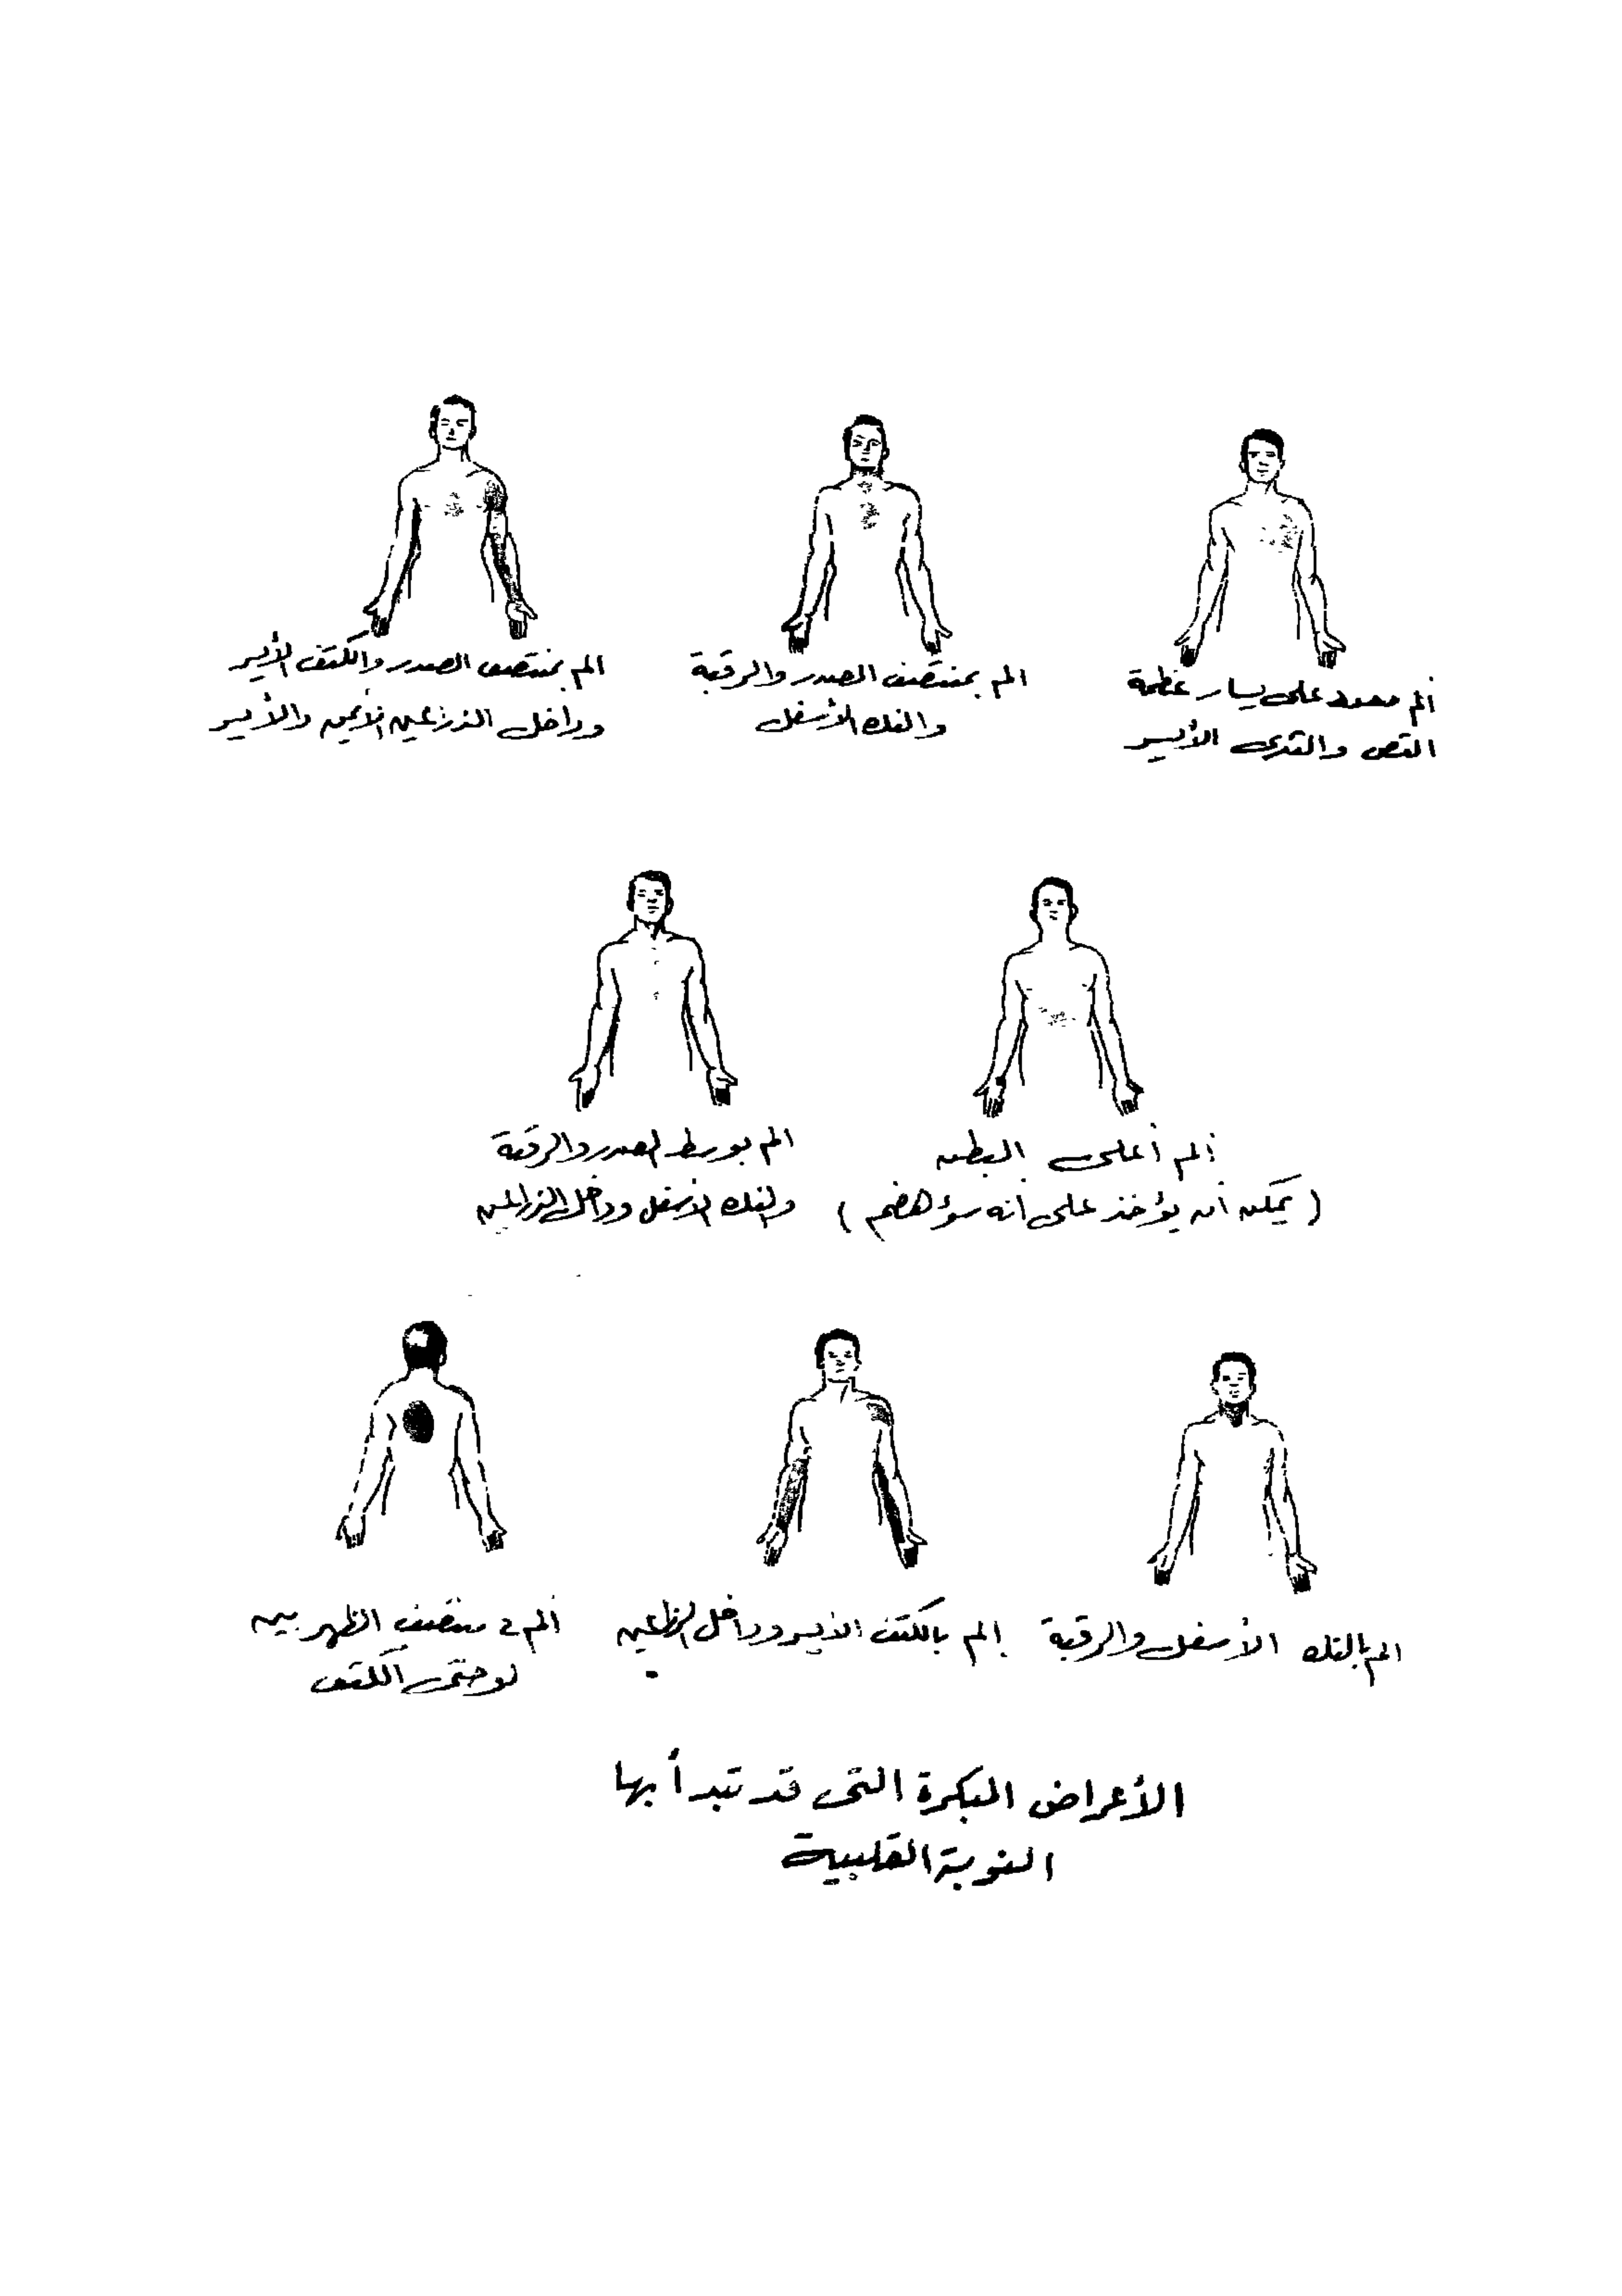 ألم محدود على يسار عظمة
القص والثدى الأيسر
الم بمنتصف الصدر والرقبة
والفك الأسفل
الم بمنتصف الصدر والكتف الأيسر
وداخل الذراعين الأيمن والأيسر
ألم أعلى البطن
( يمكن أن يؤخذ على أنه سوء هضم )
الم بوسط الصدر والرقبة
والفك الأسفل وداخل الذراعين
الم بالفك الأسفل والرقبة
الم بالكتف الأيسر وداخل الذراعين
ألم فى منتصف الظهر بين
لوحتى الكتف
الأعراض المبكرة التى قد تبدأ بها
النوبة القلبية